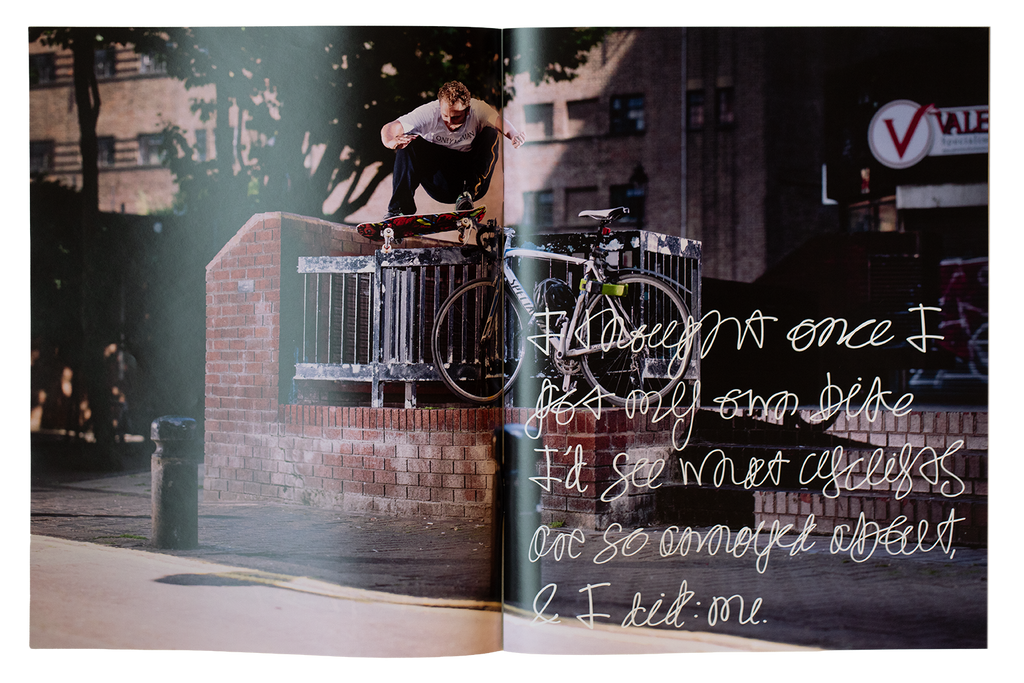 VALE
Specialis
I thought once I
got my own bike
I'd see what cyclists
are so annoyed about,
& I did: me.